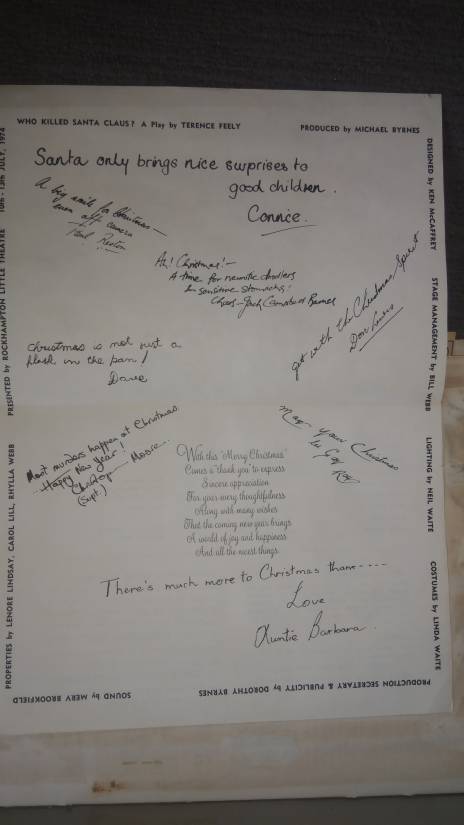 WHO KILLED SANTA CLAUS? A Play by TERENCE FEELY
PRODUCED by MICHAEL BYRNES
DESIGNED by KEN McCAFFREY
STAGE MANAGEMENT by BILL WEBB
LIGHTING by NEIL WAITE
COSTUMES by LINDA WAITE
PRODUCTION SECRETARY & PUBLICITY by DOROTHY BYRNES
SOUND by MERV BROOKFIELD
PROPERTIES by LENORE LINDSAY, CAROL LILL, RHYLLA WEBB
PRESENTED by ROCKHAMPTON LITTLE THEATRE 10th - 13th JULY, 1974
Santa only brings nice surprises to
good children.
Connie.
A big smile for Christmas —
even off camera
Paul
Ah! Christmas! —
A time for neurotic
& sensitive stomachs!
Cheers — Jack Barnes
get with the Christmas Spirit
Don
Christmas is not just a
flash in the pan!
Dave
Most murders happen at Christmas.
Happy New Year!
Moore.
(Supt.)
May your Christmas
be Gay
Ray
With this "Merry Christmas"
Comes a "thank you" to express
Sincere appreciation
For your every thoughtfulness
Along with many wishes
That the coming new year brings
A world of joy and happiness
And all the nicest things
There's much more to Christmas than ----
Love
Auntie Barbara.